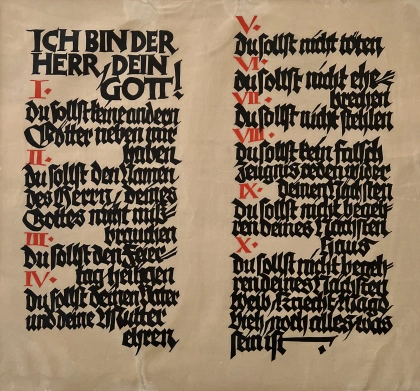 ICH BIN DER
HERR, DEIN
GOTT!
I.
Du sollst keine andern
Götter neben mir
haben
II.
Du sollst den Namen
des Herrn, deines
Gottes nicht miß-
brauchen
III.
Du sollst den Feier-
tag heiligen
IV.
Du sollst deinen Vater
und deine Mutter
ehren
V.
Du sollst nicht töten
VI.
Du sollst nicht ehe-
brechen
VII.
Du sollst nicht stehlen
VIII.
Du sollst kein falsch
Zeugnis reden wider
deinen Nächsten
IX.
Du sollst nicht begeh-
ren deines Nächsten
Haus
X.
Du sollst nicht begeh-
ren deines Nächsten
Weib, Knecht, Magd
Vieh, noch alles was
sein ist.